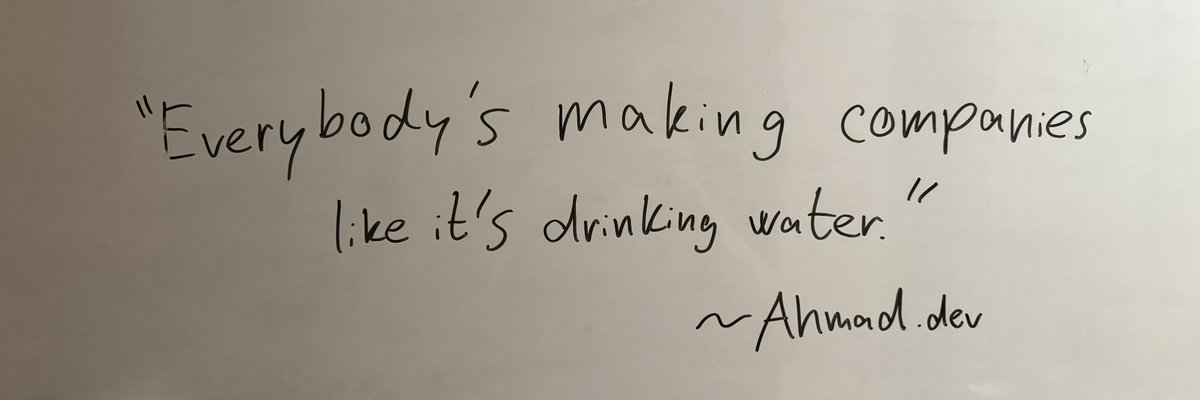 "Everybody's making companies
like it's drinking water."
~Ahmad.dev